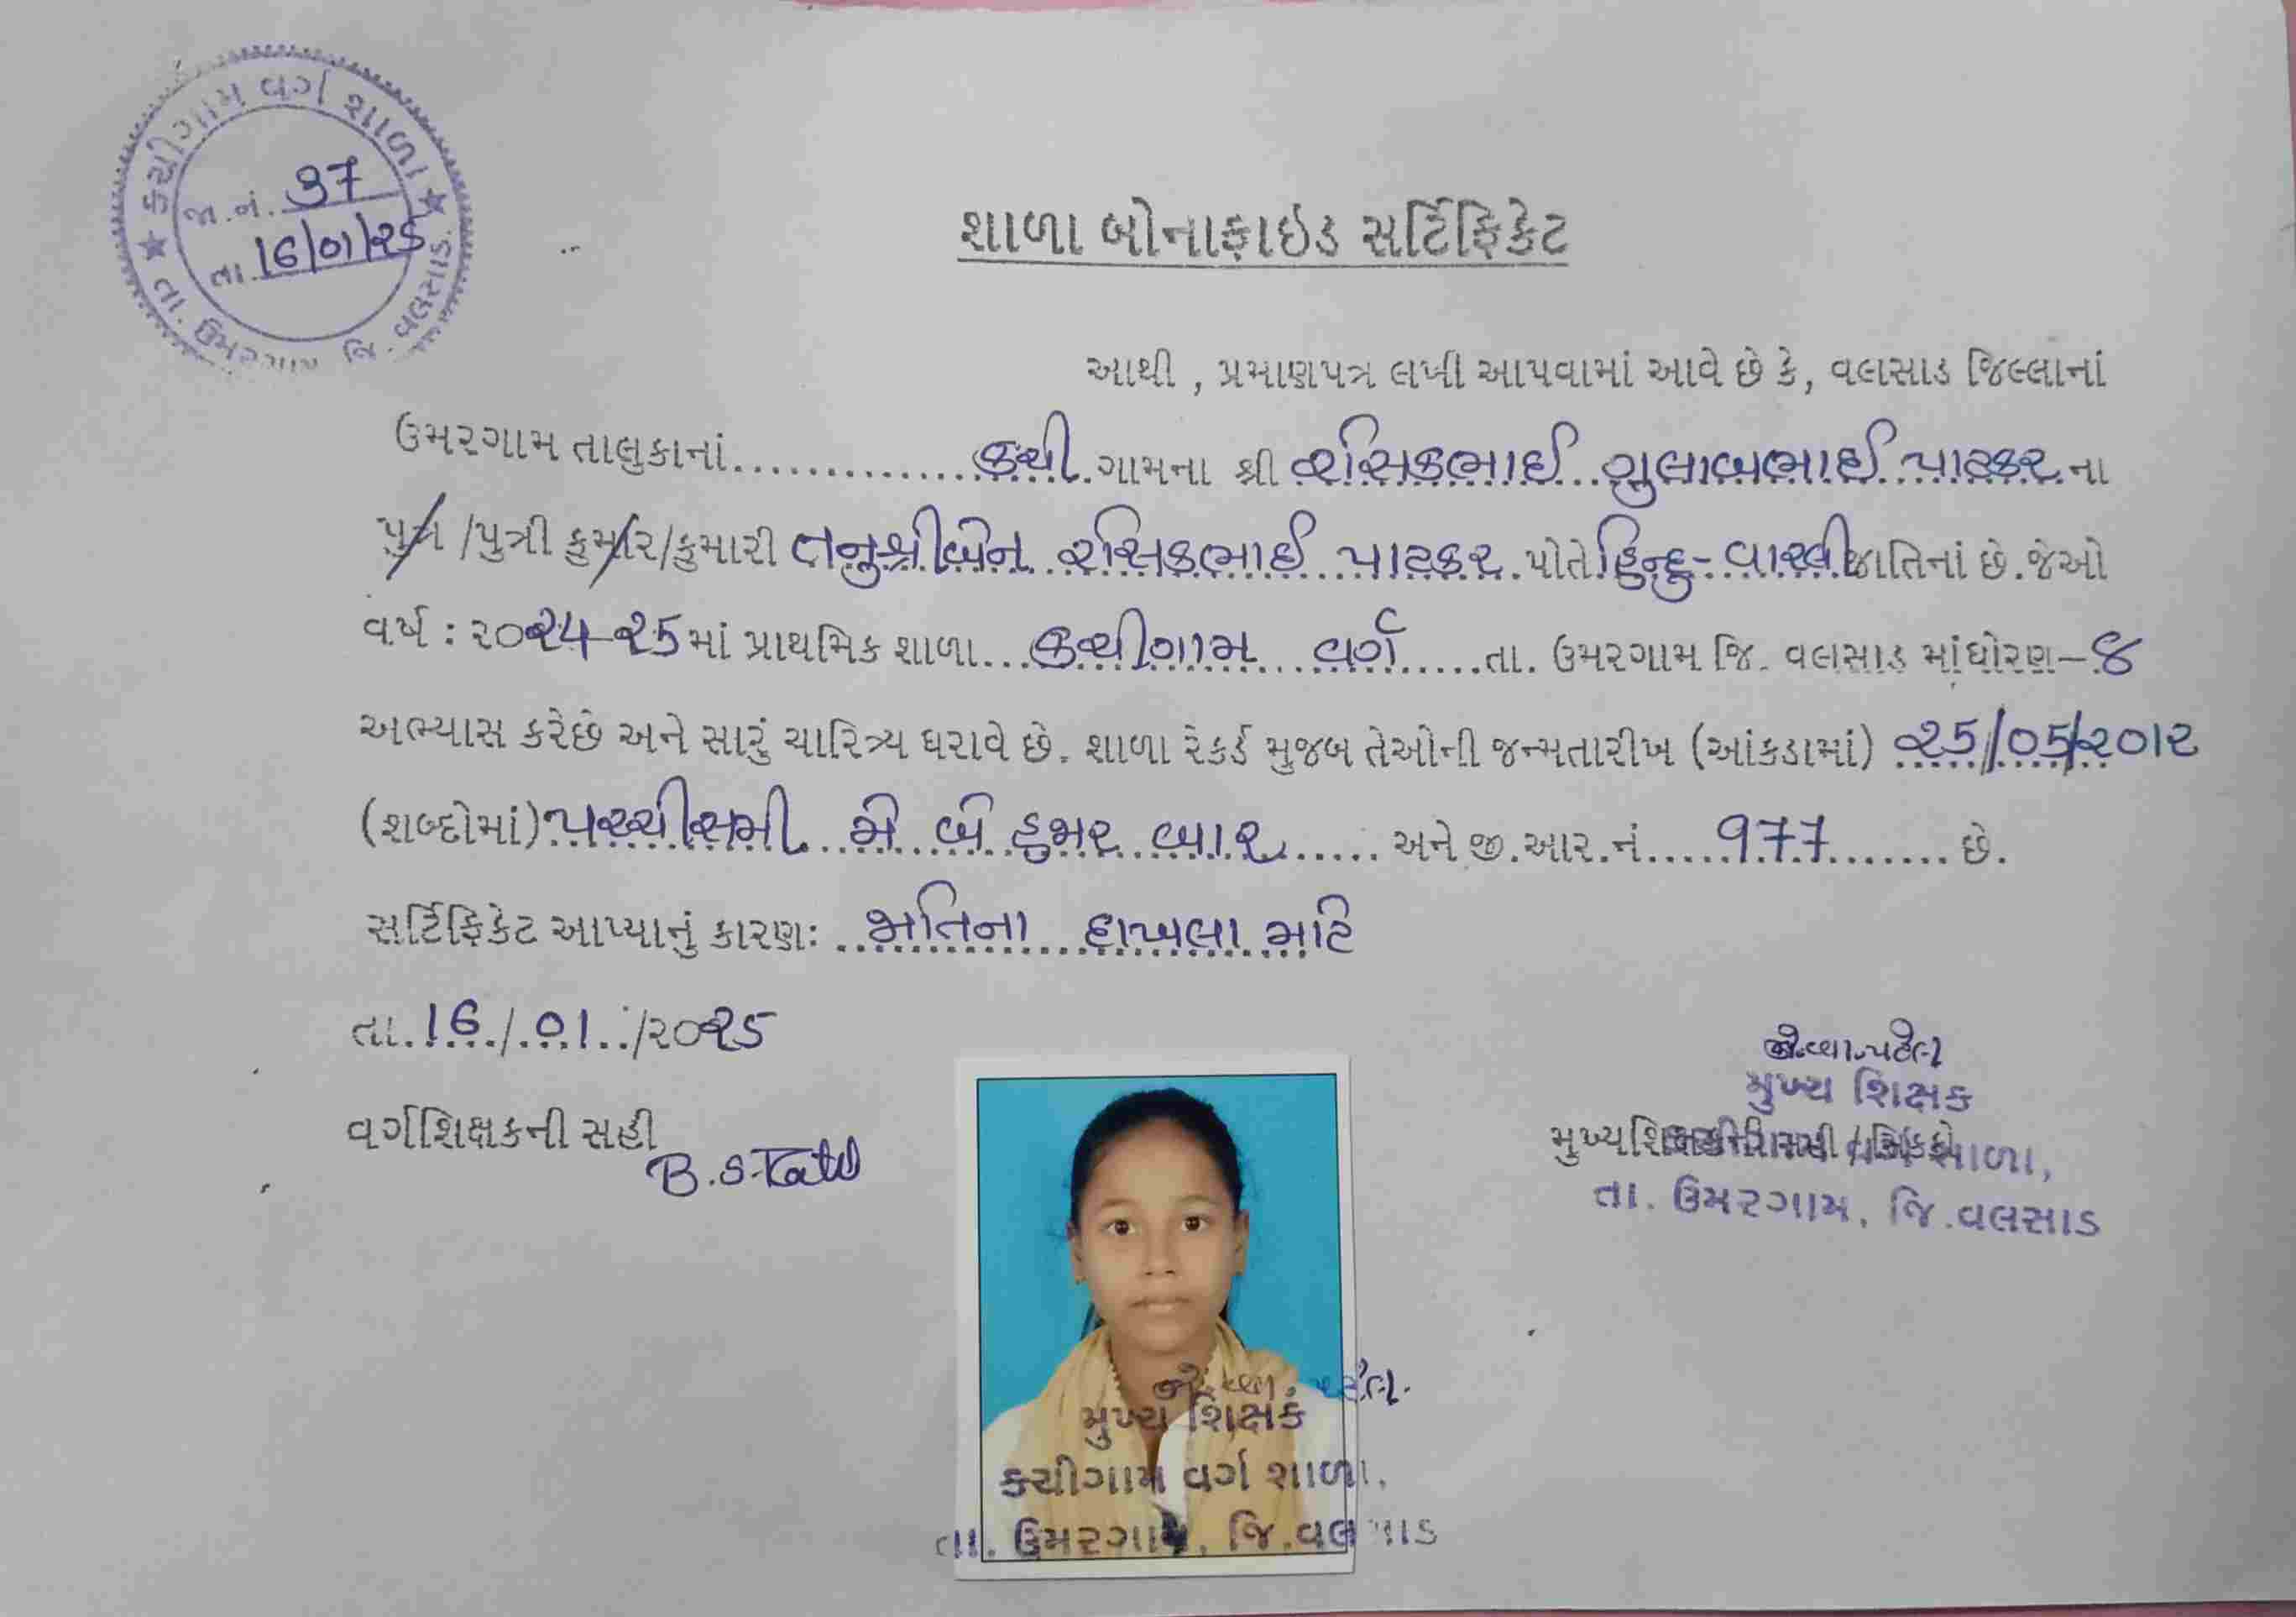 કચીગામ વર્ગ શાળા
જા.નં. 37
તા. 16/01/25
તા. ઉમરગામ જિ. વલસાડ.
શાળા બોનાફાઇડ સર્ટિફિકેટ
આથી , પ્રમાણપત્ર લખી આપવામાં આવે છે કે, વલસાડ જિલ્લાનાં
ઉમરગામ તાલુકાનાં..............કચી.ગામના શ્રી રસિકભાઈ ગુલાબભાઈ પાટકર ના
પુત્ર /પુત્રી કુમાર/કુમારી તનુશ્રીબેન રસિકભાઈ પાટકર પોતે હિન્દુ-વારલી જાતિનાં છે.જેઓ
વર્ષ : ૨૦૨4-૨5 માં પ્રાથમિક શાળા...કચીગામ વર્ગ.....તા. ઉમરગામ જિ. વલસાડ માંધોરણ–૪
અભ્યાસ કરેછે અને સારું ચારિત્ર્ય ધરાવે છે. શાળા રેકર્ડ મુજબ તેઓની જન્મતારીખ (આંકડામાં) ૨5/05/૨01૨
(શબ્દોમાં) પચ્ચીસમી મે બે હજાર બાર...... અને જી.આર.નં.....977........ છે.
સર્ટિફિકેટ આપ્યાનું કારણઃ ..જાતિના દાખલા માટે
તા.16/.01../૨૦૨5
વર્ગશિક્ષકની સહી
જે.બા.પટેલ
મુખ્ય શિક્ષક
તા. ઉમરગામ, જિ.વલસાડ
મુખ્ય શિક્ષક
કચીગામ વર્ગ શાળા,
તા. ઉમરગામ, જિ.વલસાડ